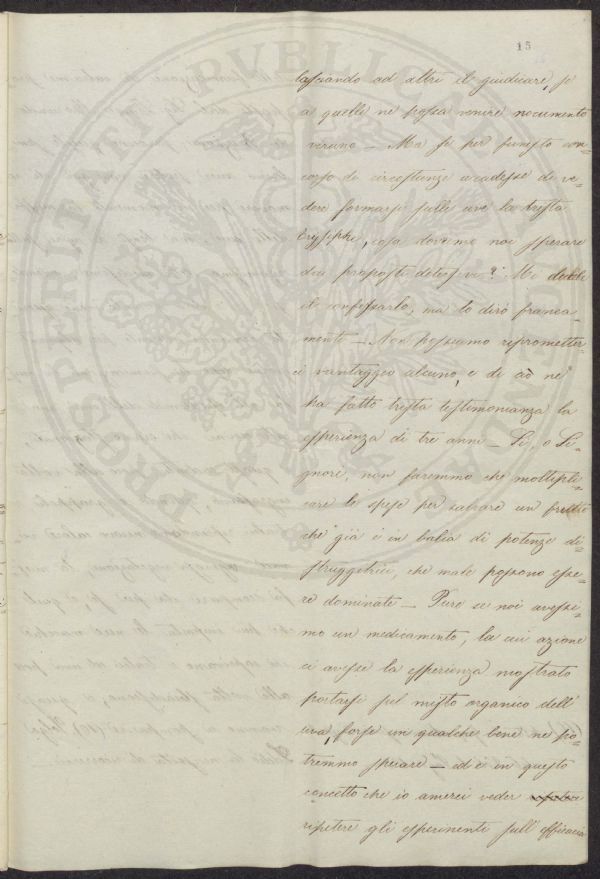 15
lasciando ad altri il giudicare, se
a quelli ne possa venire nocumento
veruno – Ma se per funesto con=
corso di circostanze accadesse di ve=
dere formarsi sulle uve la trista
Erysiphe, cosa dovremo noi sperare
dai proposti detersivi? Mi duole
il confessarlo, ma lo dirò franca=
mente – Non possiamo riprometter=
ci vantaggio alcuno, e di ciò ne
ha fatto trista testimonianza la
esperienza di tre anni – Sì, o Si=
gnori, non faremmo che moltipli=
care le spese per salvare un frutto
che già è in balia di potenze di=
struggitrici, che male possono esse=
re dominate – Pure se noi avessi=
mo un medicamento, la cui azione
ci avesse la esperienza mostrato
portarsi sul misto organico dell'
uva, forse un qualche bene ne po=
tremmo sperare – ed è in questo
concetto che io amerei veder
ripetere gli esperimenti sull'efficacia
PROSPERITATI PVBLICAE AVGENDAE